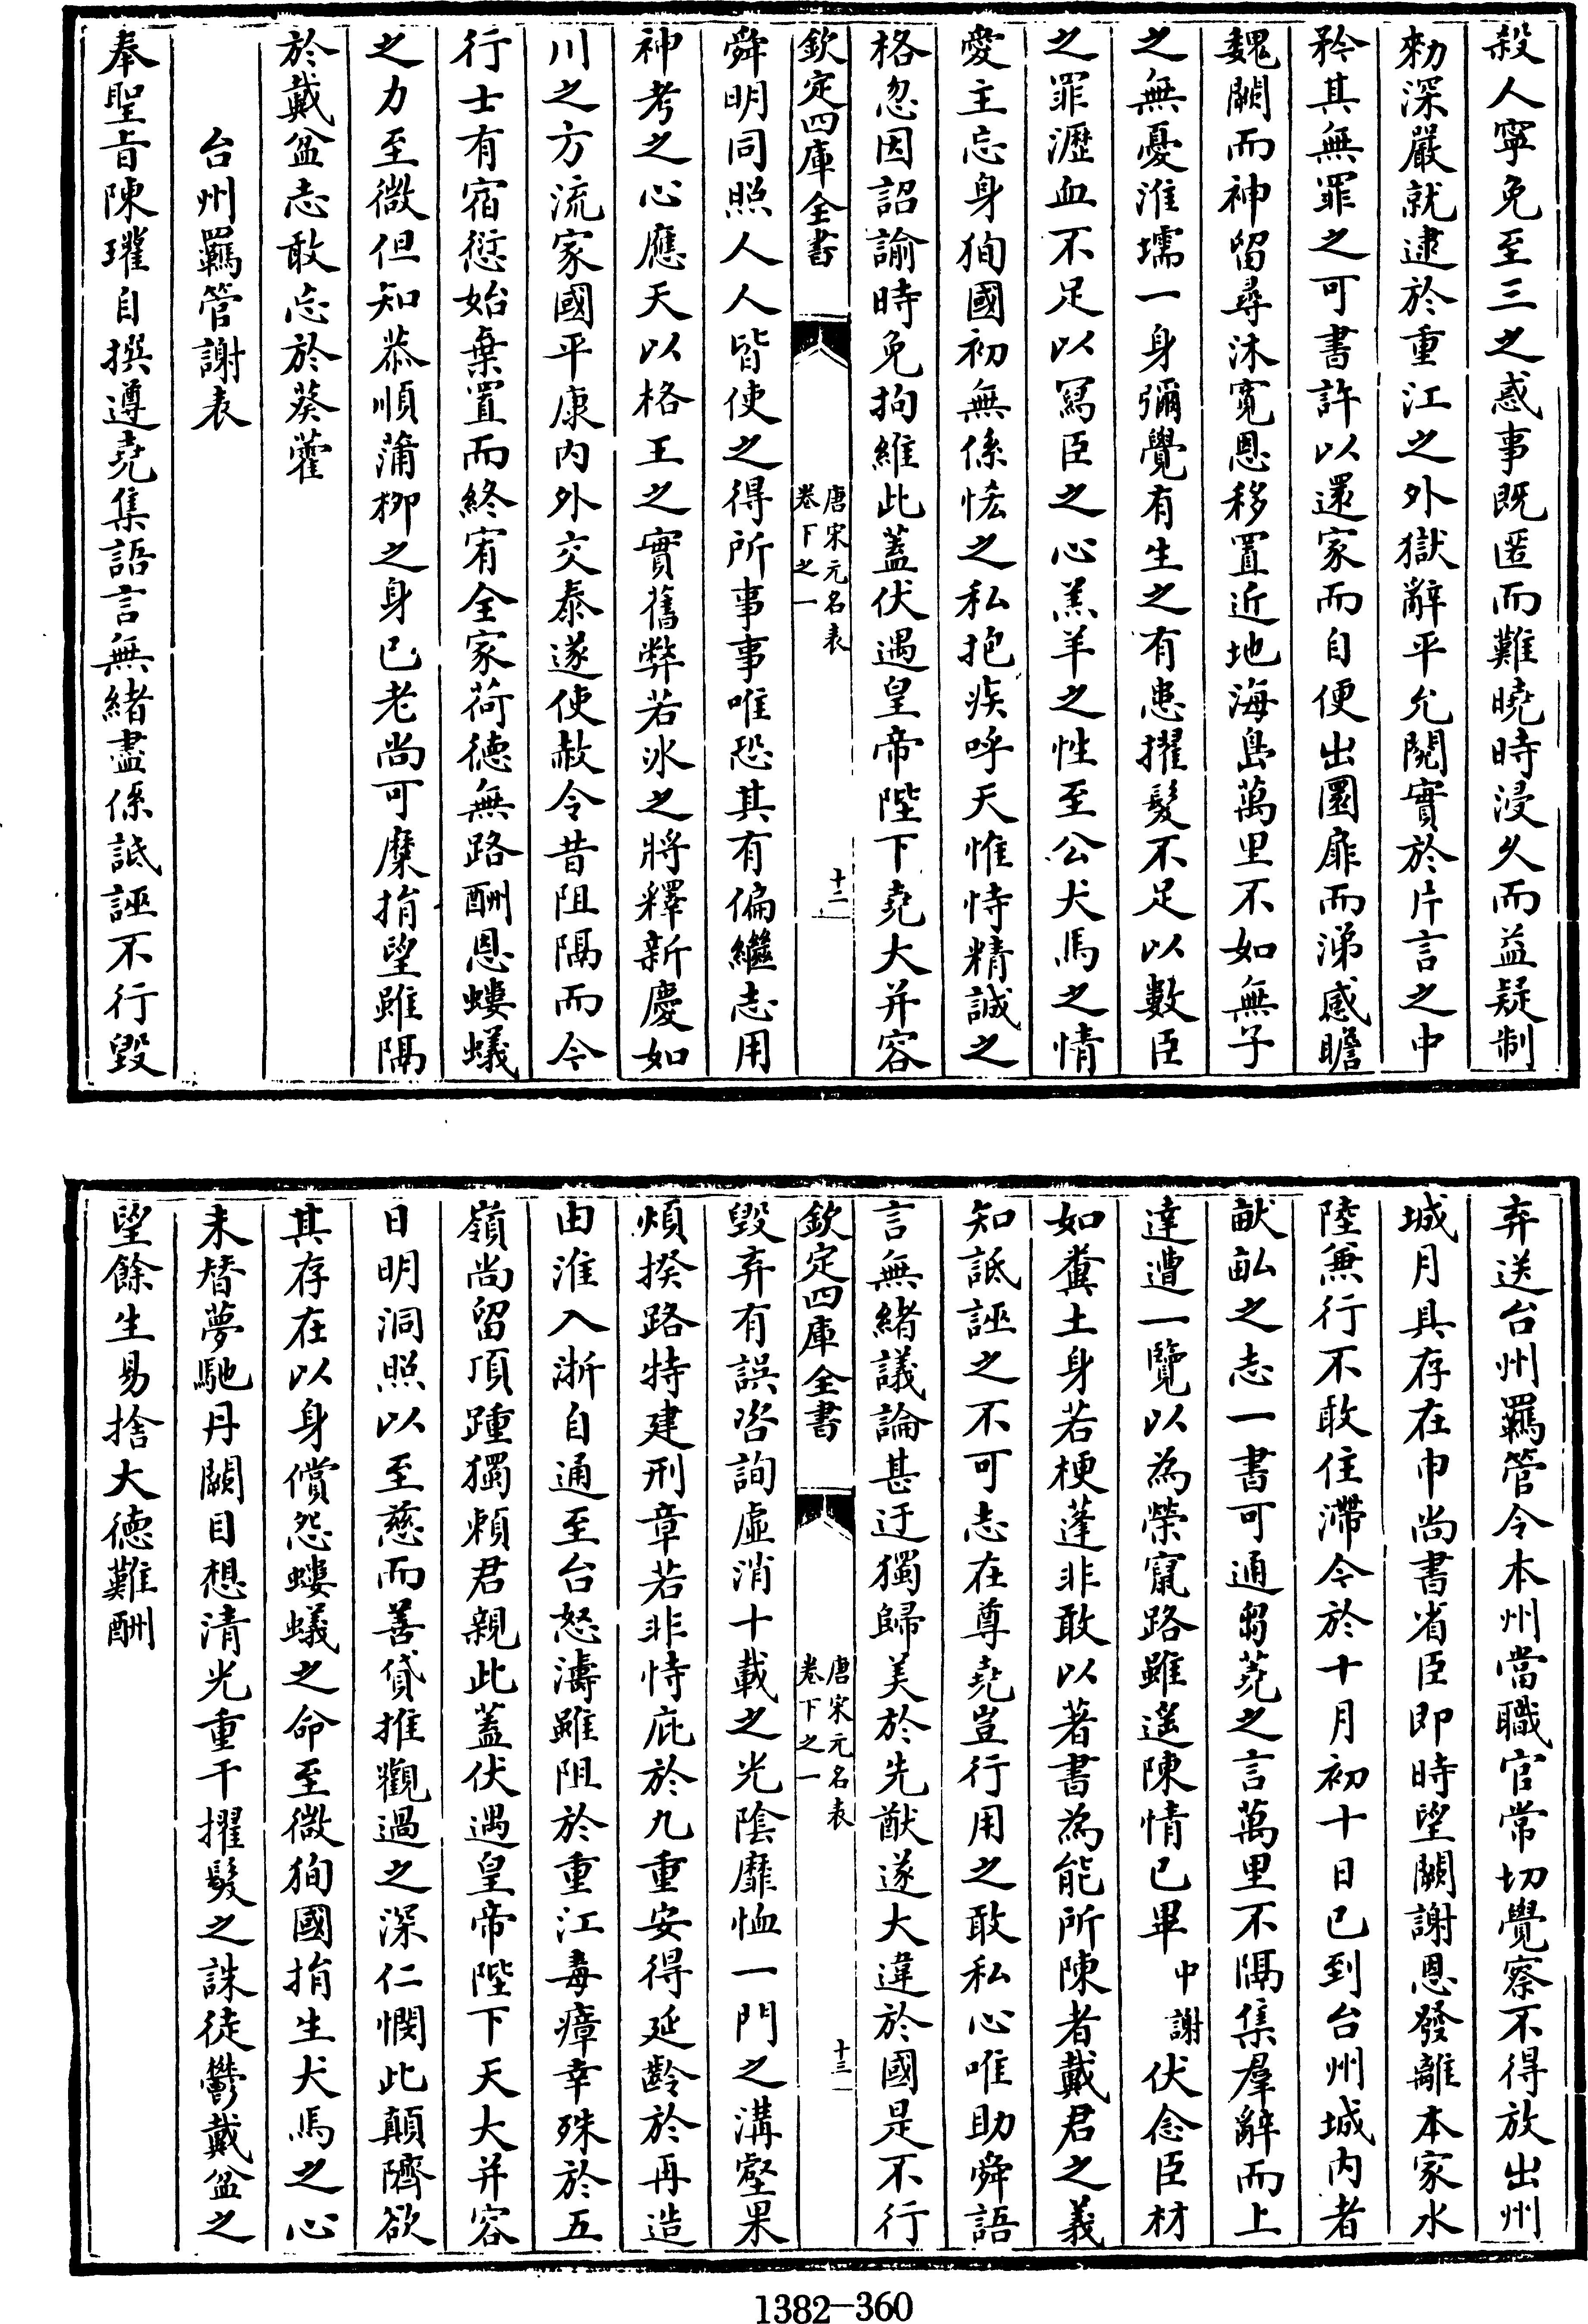 殺人寧免至三之惑事既匿而難曉時浸久而益疑制
勑深嚴就逮於重江之外獄辭平允閱實於片言之中
矜其無罪之可書許以還家而自便出圜扉而涕感瞻
魏闕而神留尋沐寛恩移置近地海島萬里不如無子
之無憂淮壖一身彌覺有生之有患擢髮不足以數臣
之罪瀝血不足以寫臣之心羔羊之性至公犬馬之情
愛主忘身狥國初無係恡之私抱疾呼天惟恃精誠之
格忽因詔諭時免拘維此蓋伏遇皇帝陛下堯大并容
欽定四庫全書
唐宋元名表
卷下之一
十二
舜明同照人人皆使之得所事事唯恐其有偏繼志用
神考之心應天以格王之實舊弊若氷之將釋新慶如
川之方流家國平康内外交泰遂使赦令昔阻隔而今
行士有宿愆始棄置而終宥全家荷德無路酬恩螻蟻
之力至微但知恭順蒲柳之身已老尚可糜捐望雖隔
於戴盆志敢忘於葵藿
台州羈管謝表
奉聖旨陳瓘自撰遵堯集語言無緒盡係詆誣不行毀
弃送台州羈管令本州當職官常切覺察不得放出州
城月具存在申尚書省臣即時望闕謝恩發離本家水
陸兼行不敢住滯今於十月初十日已到台州城内者
献畝之志一書可通芻蕘之言萬里不隔集羣辭而上
達遭一覽以為榮竄路雖遙陳情已畢中謝伏念臣材
如糞土身若梗蓬非敢以著書為能所陳者戴君之義
知詆誣之不可志在尊堯豈行用之敢私心唯助舜語
言無緒議論甚迂獨歸美於先猷遂大違於國是不行
欽定四庫全書
唐宋元名表
卷下之一
十三
毀弃有誤咨詢虛消十載之光陰靡恤一門之溝壑果
煩揆路特建刑章若非恃庇於九重安得延齡於再造
由淮入浙自通至台怒濤雖阻於重江毒瘴幸殊於五
嶺尚留頂踵獨頼君親此蓋伏遇皇帝陛下天大并容
日明洞照以至慈而善貸推觀過之深仁憫此顛隮欲
其存在以身償怨螻蟻之命至微狥國捐生犬馬之心
未替夢馳丹闕目想清光重干擢髮之誅徒鬱戴盆之
望餘生易捨大德難酬
1382-360